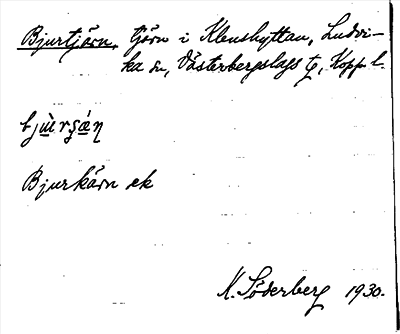 Bjurtjärn, tjärn i Klenshyttan, Ludvi-
ka sn, Västerbergslags tg, Kopp l.
bju̇rʂǽn
Bjurkärn ek
K. Söderberg 1930.